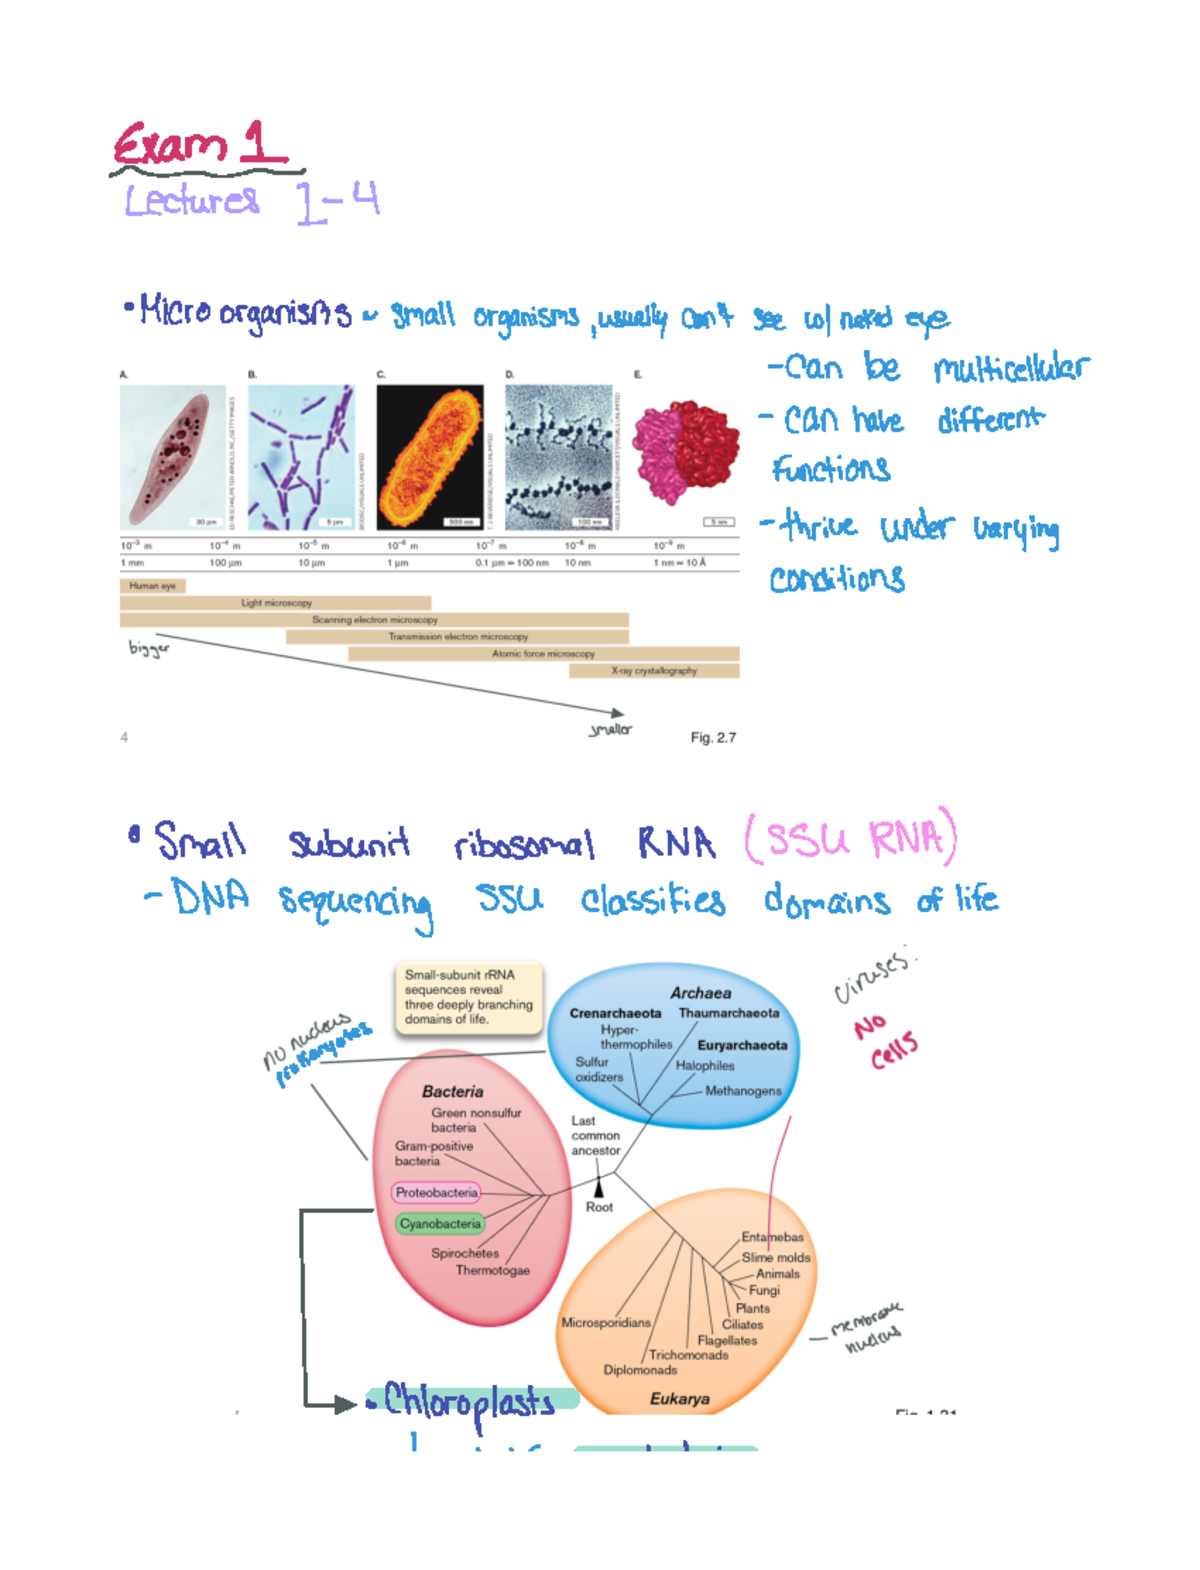 Exam 1
Lectures 1-4
• Microorganisms ~ small organisms, usually can't see w/ naked eye
- Can be multicellular
- can have different
functions
- thrive under varying
conditions
A. B. C. D. E.
30 µm 5 µm 500 nm 100 nm 5 nm
10⁻³ m 10⁻⁴ m 10⁻⁵ m 10⁻⁶ m 10⁻⁷ m 10⁻⁸ m 10⁻⁹ m
1 mm 100 µm 10 µm 1 µm 0.1 µm = 100 nm 10 nm 1 nm = 10 Å
Human eye
Light microscopy
Scanning electron microscopy
Transmission electron microscopy
Atomic force microscopy
X-ray crystallography
bigger
smaller
4
Fig. 2.7
• Small subunit ribosomal RNA (SSU RNA)
- DNA sequencing SSU classifies domains of life
Small-subunit rRNA
sequences reveal
three deeply branching
domains of life.
viruses:
No
cells
no nucleus
prokaryotes
Archaea
Crenarchaeota
Thaumarchaeota
Hyper-
thermophiles
Euryarchaeota
Sulfur
oxidizers
Halophiles
Methanogens
Bacteria
Green nonsulfur
bacteria
Gram-positive
bacteria
Proteobacteria
Cyanobacteria
Spirochetes
Thermotogae
Last
common
ancestor
Root
Entamebas
Slime molds
Animals
Fungi
Plants
Ciliates
Flagellates
Trichomonads
Diplomonads
Microsporidians
Eukarya
membrane
nucleus
• Chloroplasts